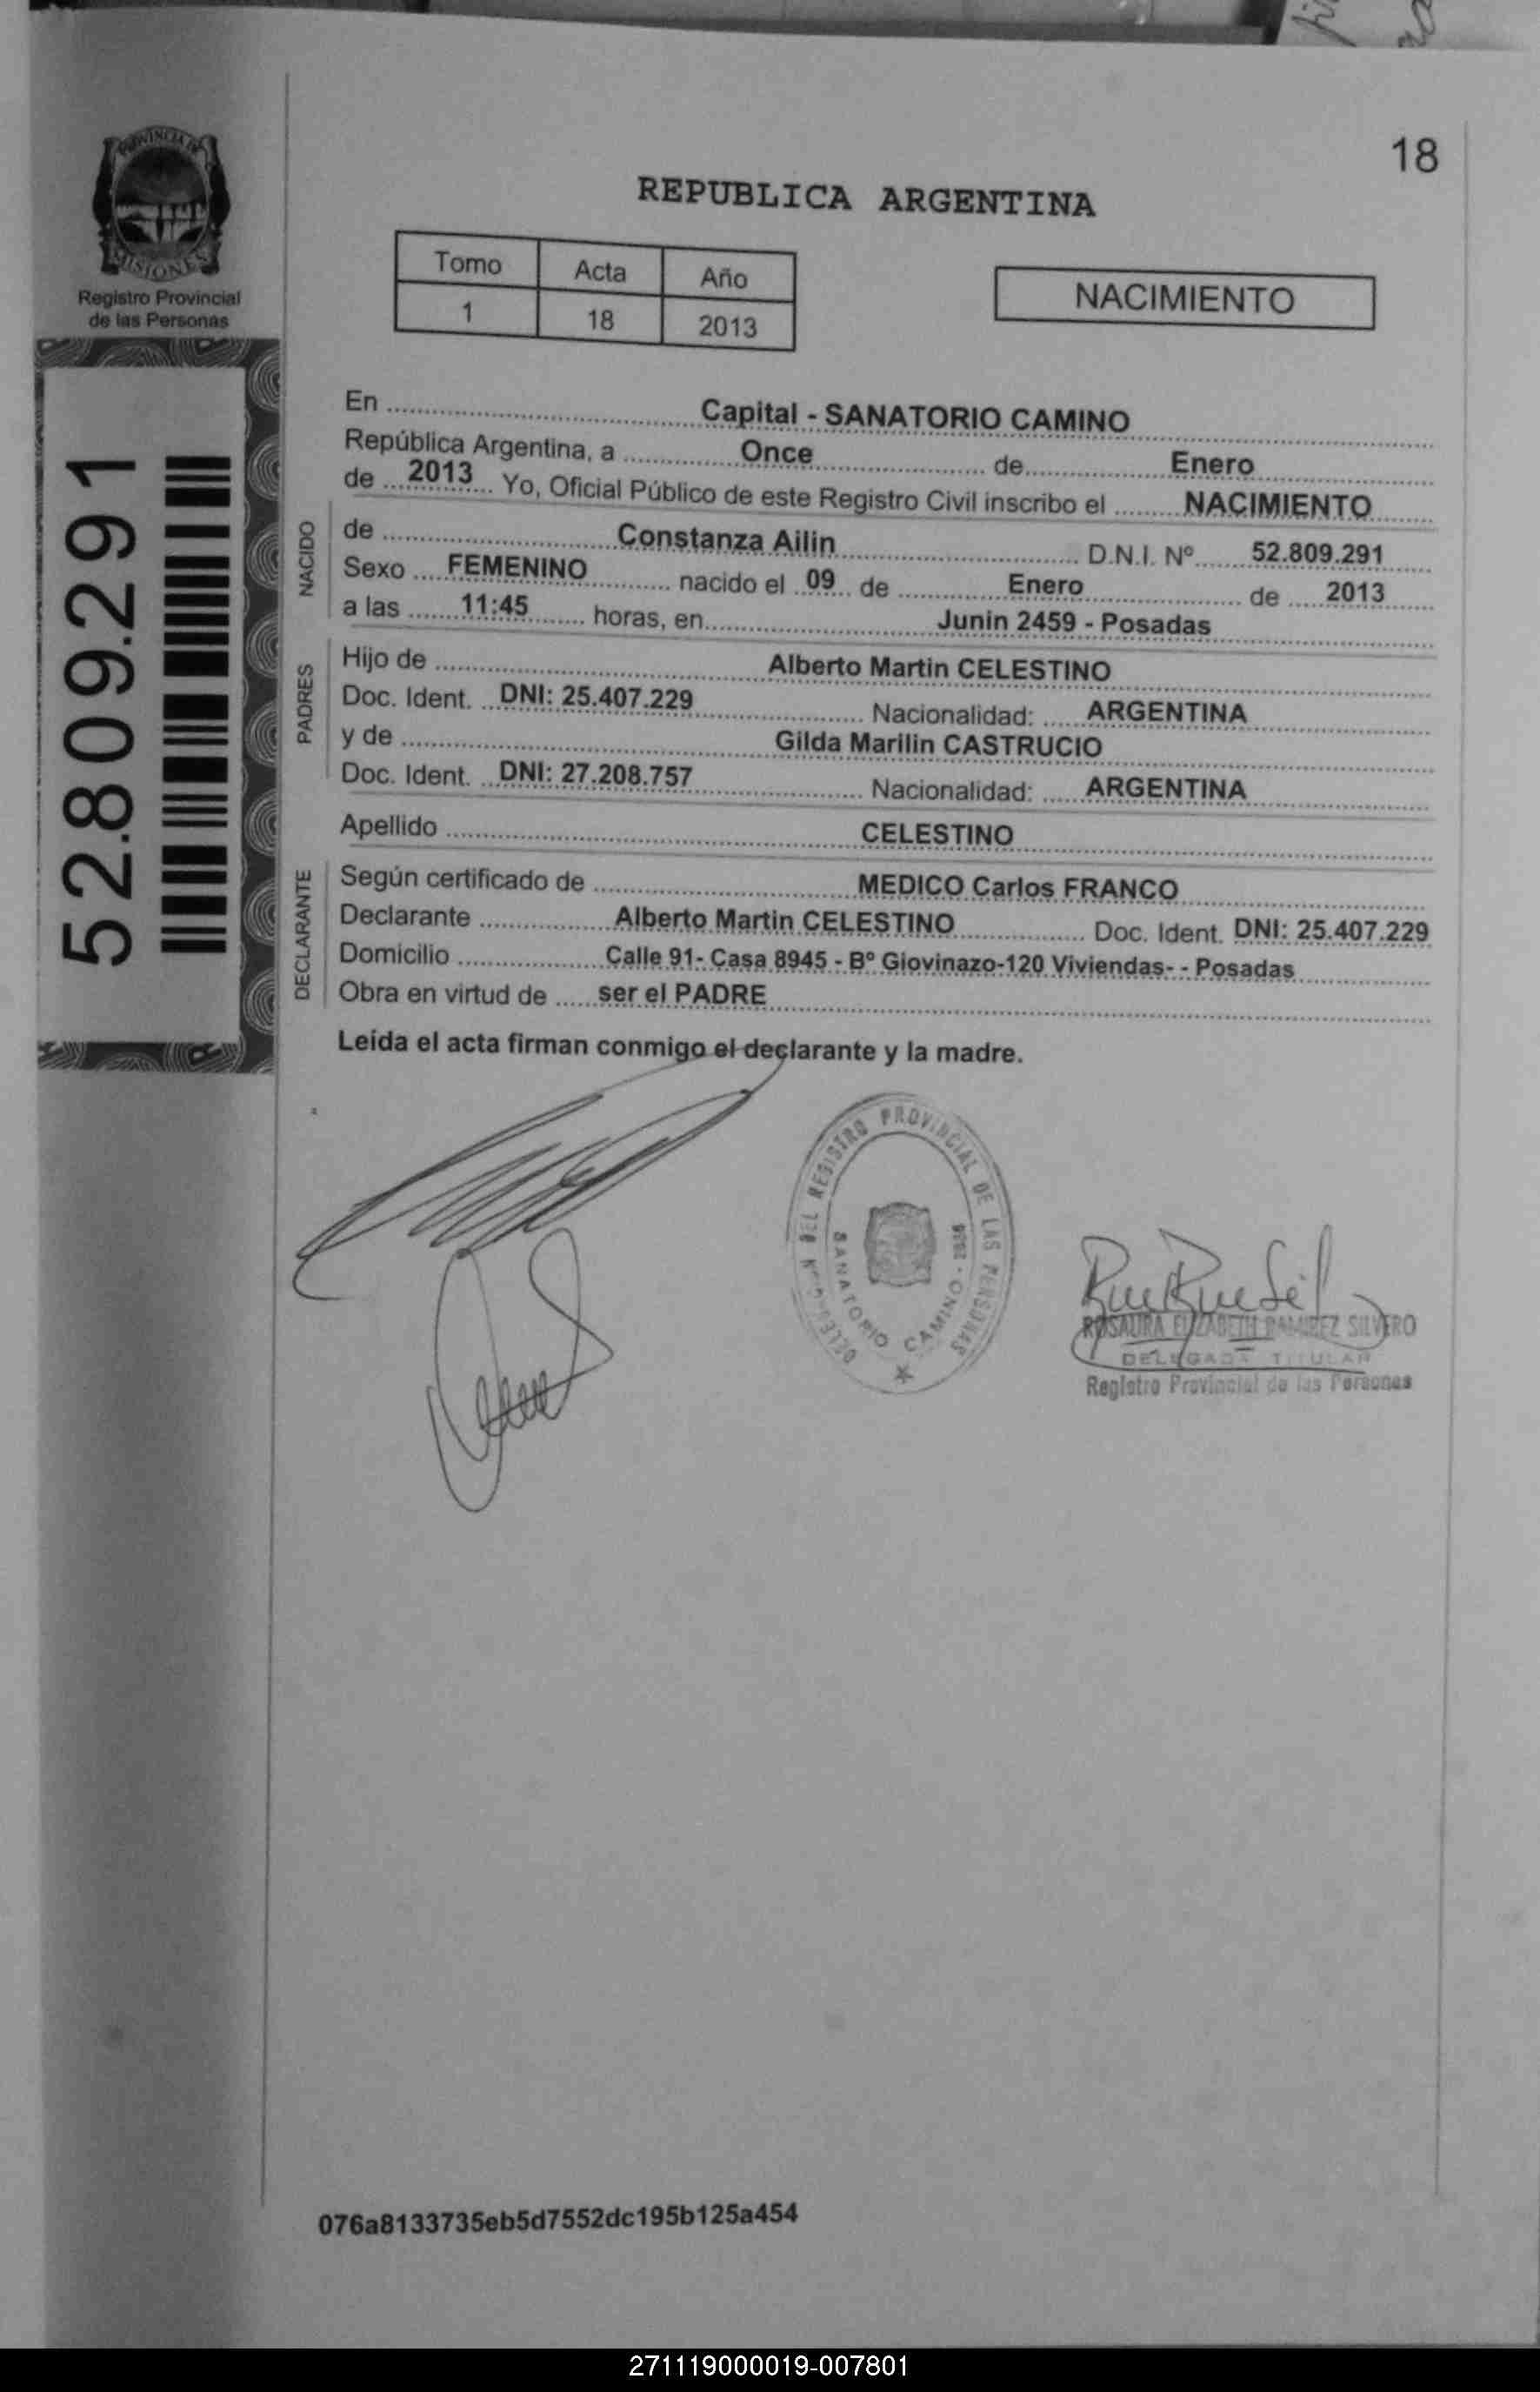 18
PROVINCIA DE
MISIONES
Registro Provincial
de las Personas
REPUBLICA ARGENTINA
Tomo Acta Año
1 18 2013
NACIMIENTO
52.809.291
En Capital - SANATORIO CAMINO
República Argentina, a Once de Enero
de 2013 Yo, Oficial Público de este Registro Civil inscribo el NACIMIENTO
NACIDO
de Constanza Ailin D.N.I. Nº 52.809.291
Sexo FEMENINO nacido el 09 de Enero de 2013
a las 11:45 horas, en Junin 2459 - Posadas
PADRES
Hijo de Alberto Martin CELESTINO
Doc. Ident. DNI: 25.407.229 Nacionalidad: ARGENTINA
y de Gilda Marilin CASTRUCIO
Doc. Ident. DNI: 27.208.757 Nacionalidad: ARGENTINA
Apellido CELESTINO
DECLARANTE
Según certificado de MEDICO Carlos FRANCO
Declarante Alberto Martin CELESTINO Doc. Ident. DNI: 25.407.229
Domicilio Calle 91- Casa 8945 - Bº Giovinazo-120 Viviendas- - Posadas
Obra en virtud de ser el PADRE
Leída el acta firman conmigo el declarante y la madre.
DEL REGISTRO PROVINCIAL DE LAS PERSONAS
SANATORIO CAMINO
ROSAURA ELIZABETH RAMIREZ SILVERO
DELEGADA TITULAR
Registro Provincial de las Personas
076a8133735eb5d7552dc195b125a454
271119000019-007801